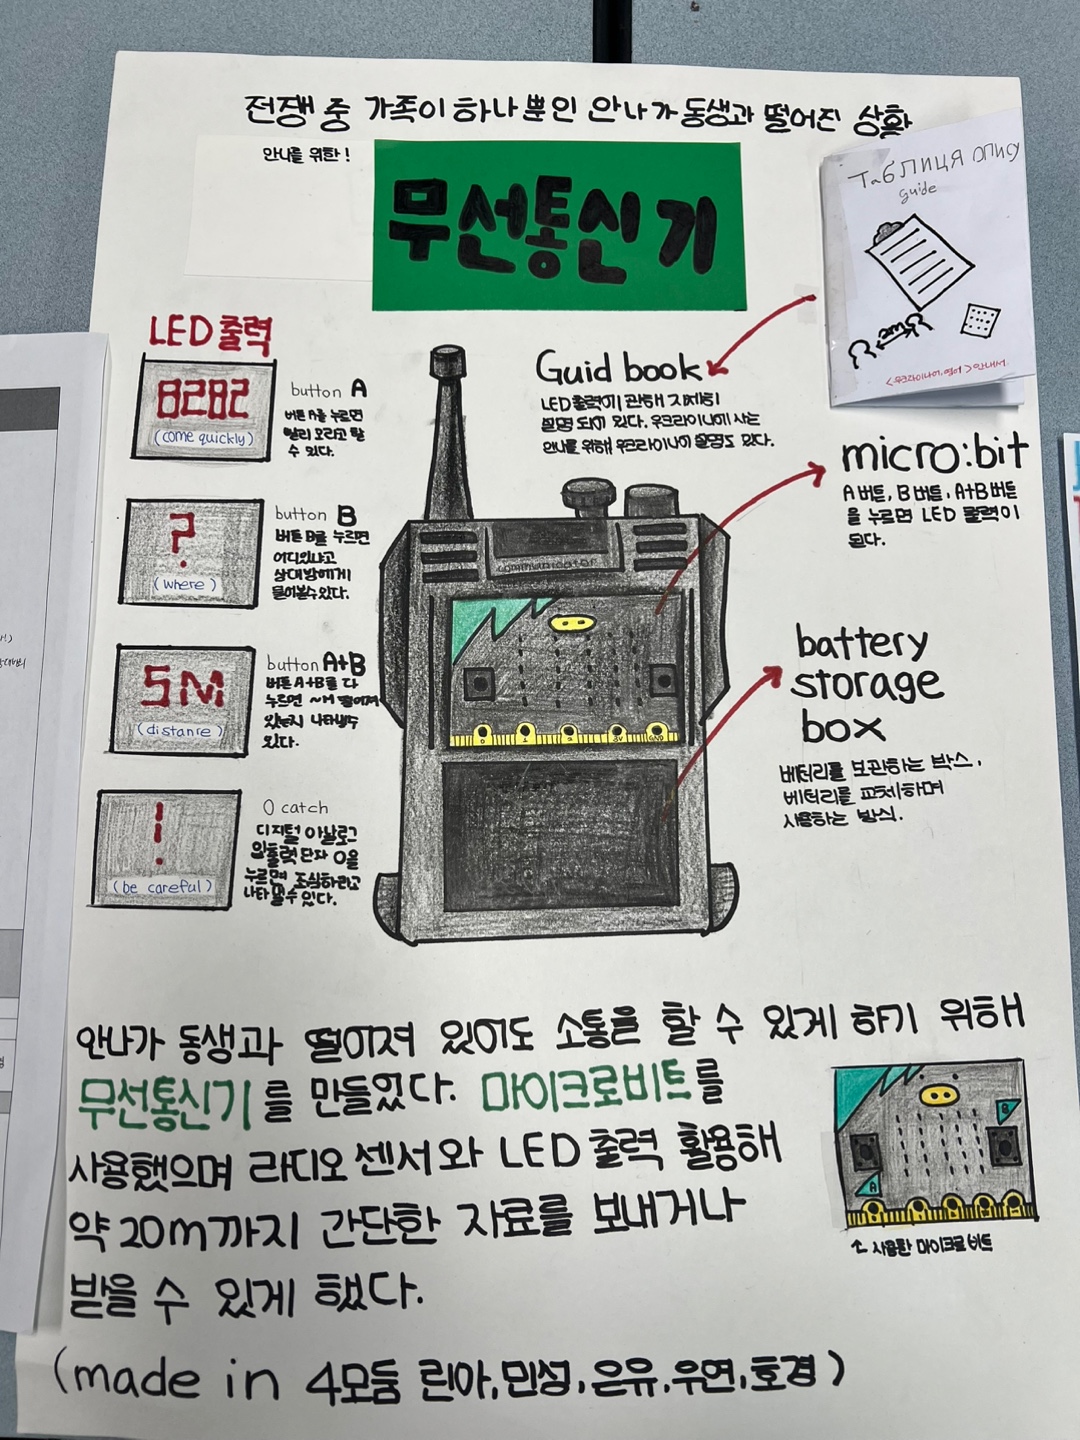 전쟁 중 가족이 하나뿐인 안나가 동생과 떨어진 상황
안나를 위한!
무선통신기
Таблиця опису
Guide
2m
LED 출력
8282
(come quickly)
button A
버튼 A를 누르면
빨리 오라고 할
수 있다.
?
(where)
button B
버튼 B를 누르면
어디있냐고
상대방에게
물어볼수있다.
5M
(distance)
button A+B
버튼 A+B를 다
누르면 ~M 떨어져
있는지 나타낼수
있다.
!
(be careful)
0 catch
디지털 아날로그
입출력 단자 0을
누르면 조심하라고
나타낼 수 있다.
communicator
0 1 2 3V GND
Guid book
LED출력에 관해 자세히
설명 되어 있다. 우크라이나에 사는
안나를 위해 우크라이나어 설명도 있다.
micro:bit
A 버튼, B 버튼, A+B 버튼
을 누르면 LED 출력이
된다.
battery
storage
box
배터리를 보관하는 박스.
베터리를 교체하며
사용하는 방식.
안나가 동생과 떨어져 있어도 소통을 할 수 있게 하기 위해
무선통신기를 만들었다. 마이크로비트를
사용했으며 라디오 센서와 LED 출력 활용해
약 20m까지 간단한 자료를 보내거나
받을 수 있게 했다.
B
A
↑ 사용한 마이크로비트
(made in 4모둠 린아, 민성, 은유, 우연, 호경)